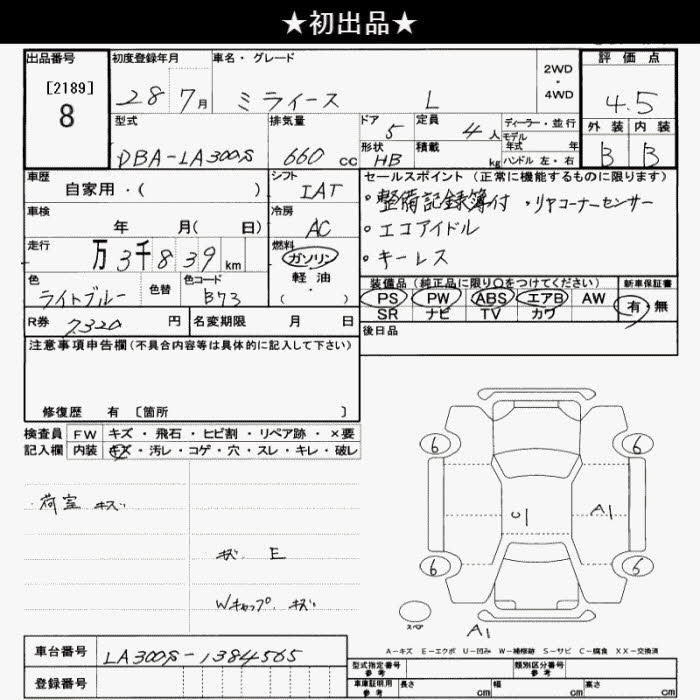 ★初出品★
出品番号 初度登録年月 車名・グレード 2WD ・ 4WD 評価点
[2189]
8
28 7月 ミライース L 4.5
型式 排気量 ドア 5 定員 4人 ディーラー・並行 外装 内装
モデル
DBA-LA300S 660cc 形状 HB 積載 kg 年式 年 B B
ハンドル 左・右
車歴 シフト セールスポイント (正常に機能するものに限ります)
自家用・( ) IAT ・整備記録簿付 ・リヤコーナーセンサー
車検 冷房 ・エコアイドル
年 月( 日) AC ・キーレス
走行 燃料
万3千839km ガソリン
軽油
( )
色 色替 色コード 装備品 (純正品に限り○をつけてください) 新車保証書
ライトブルー B73 PS PW ABS エアB AW 有・無
SR ナビ TV カワ
R券 7320円 名変期限 月 日 後日品
注意事項申告欄(不具合内容等は具体的に記入して下さい)
修復歴 有 〔箇所 〕
検査員 FW キズ・飛石・ヒビ割・リペア跡・×要
記入欄 内装 キズ・汚レ・コゲ・穴・スレ・キレ・破レ
・荷室 キズ
キズ E
Wキャップ キズ
6 6
U1 A1
6 6
スペア
A1
A-キズ E-エクボ U-凹み W-補修跡 S-サビ C-腐食 XX-交換済
車台番号 LA300S-1384565
型式指定番号 参考 類別区分番号 参考
登録番号 車庫証明用 参考 長さ cm 幅 cm 高さ cm